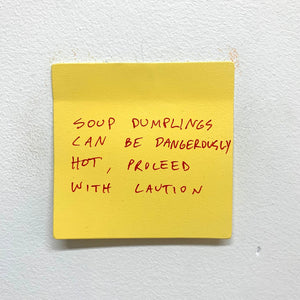 SOUP DUMPLINGS
CAN BE DANGEROUSLY
HOT, PROCEED
WITH CAUTION